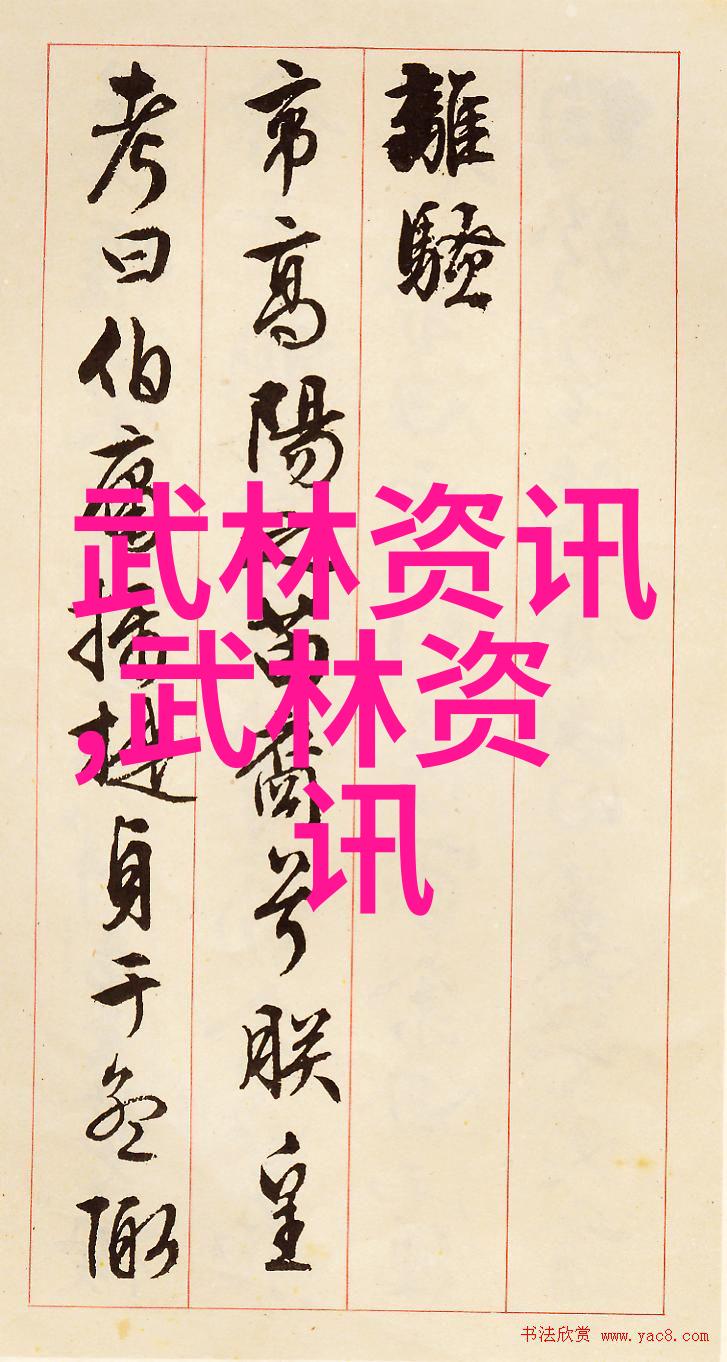 離騷
帝高陽之苗裔兮朕皇
考曰伯庸攝提貞于孟陬
武林资讯
,武林资
讯
书法欣赏 www.yac8.com